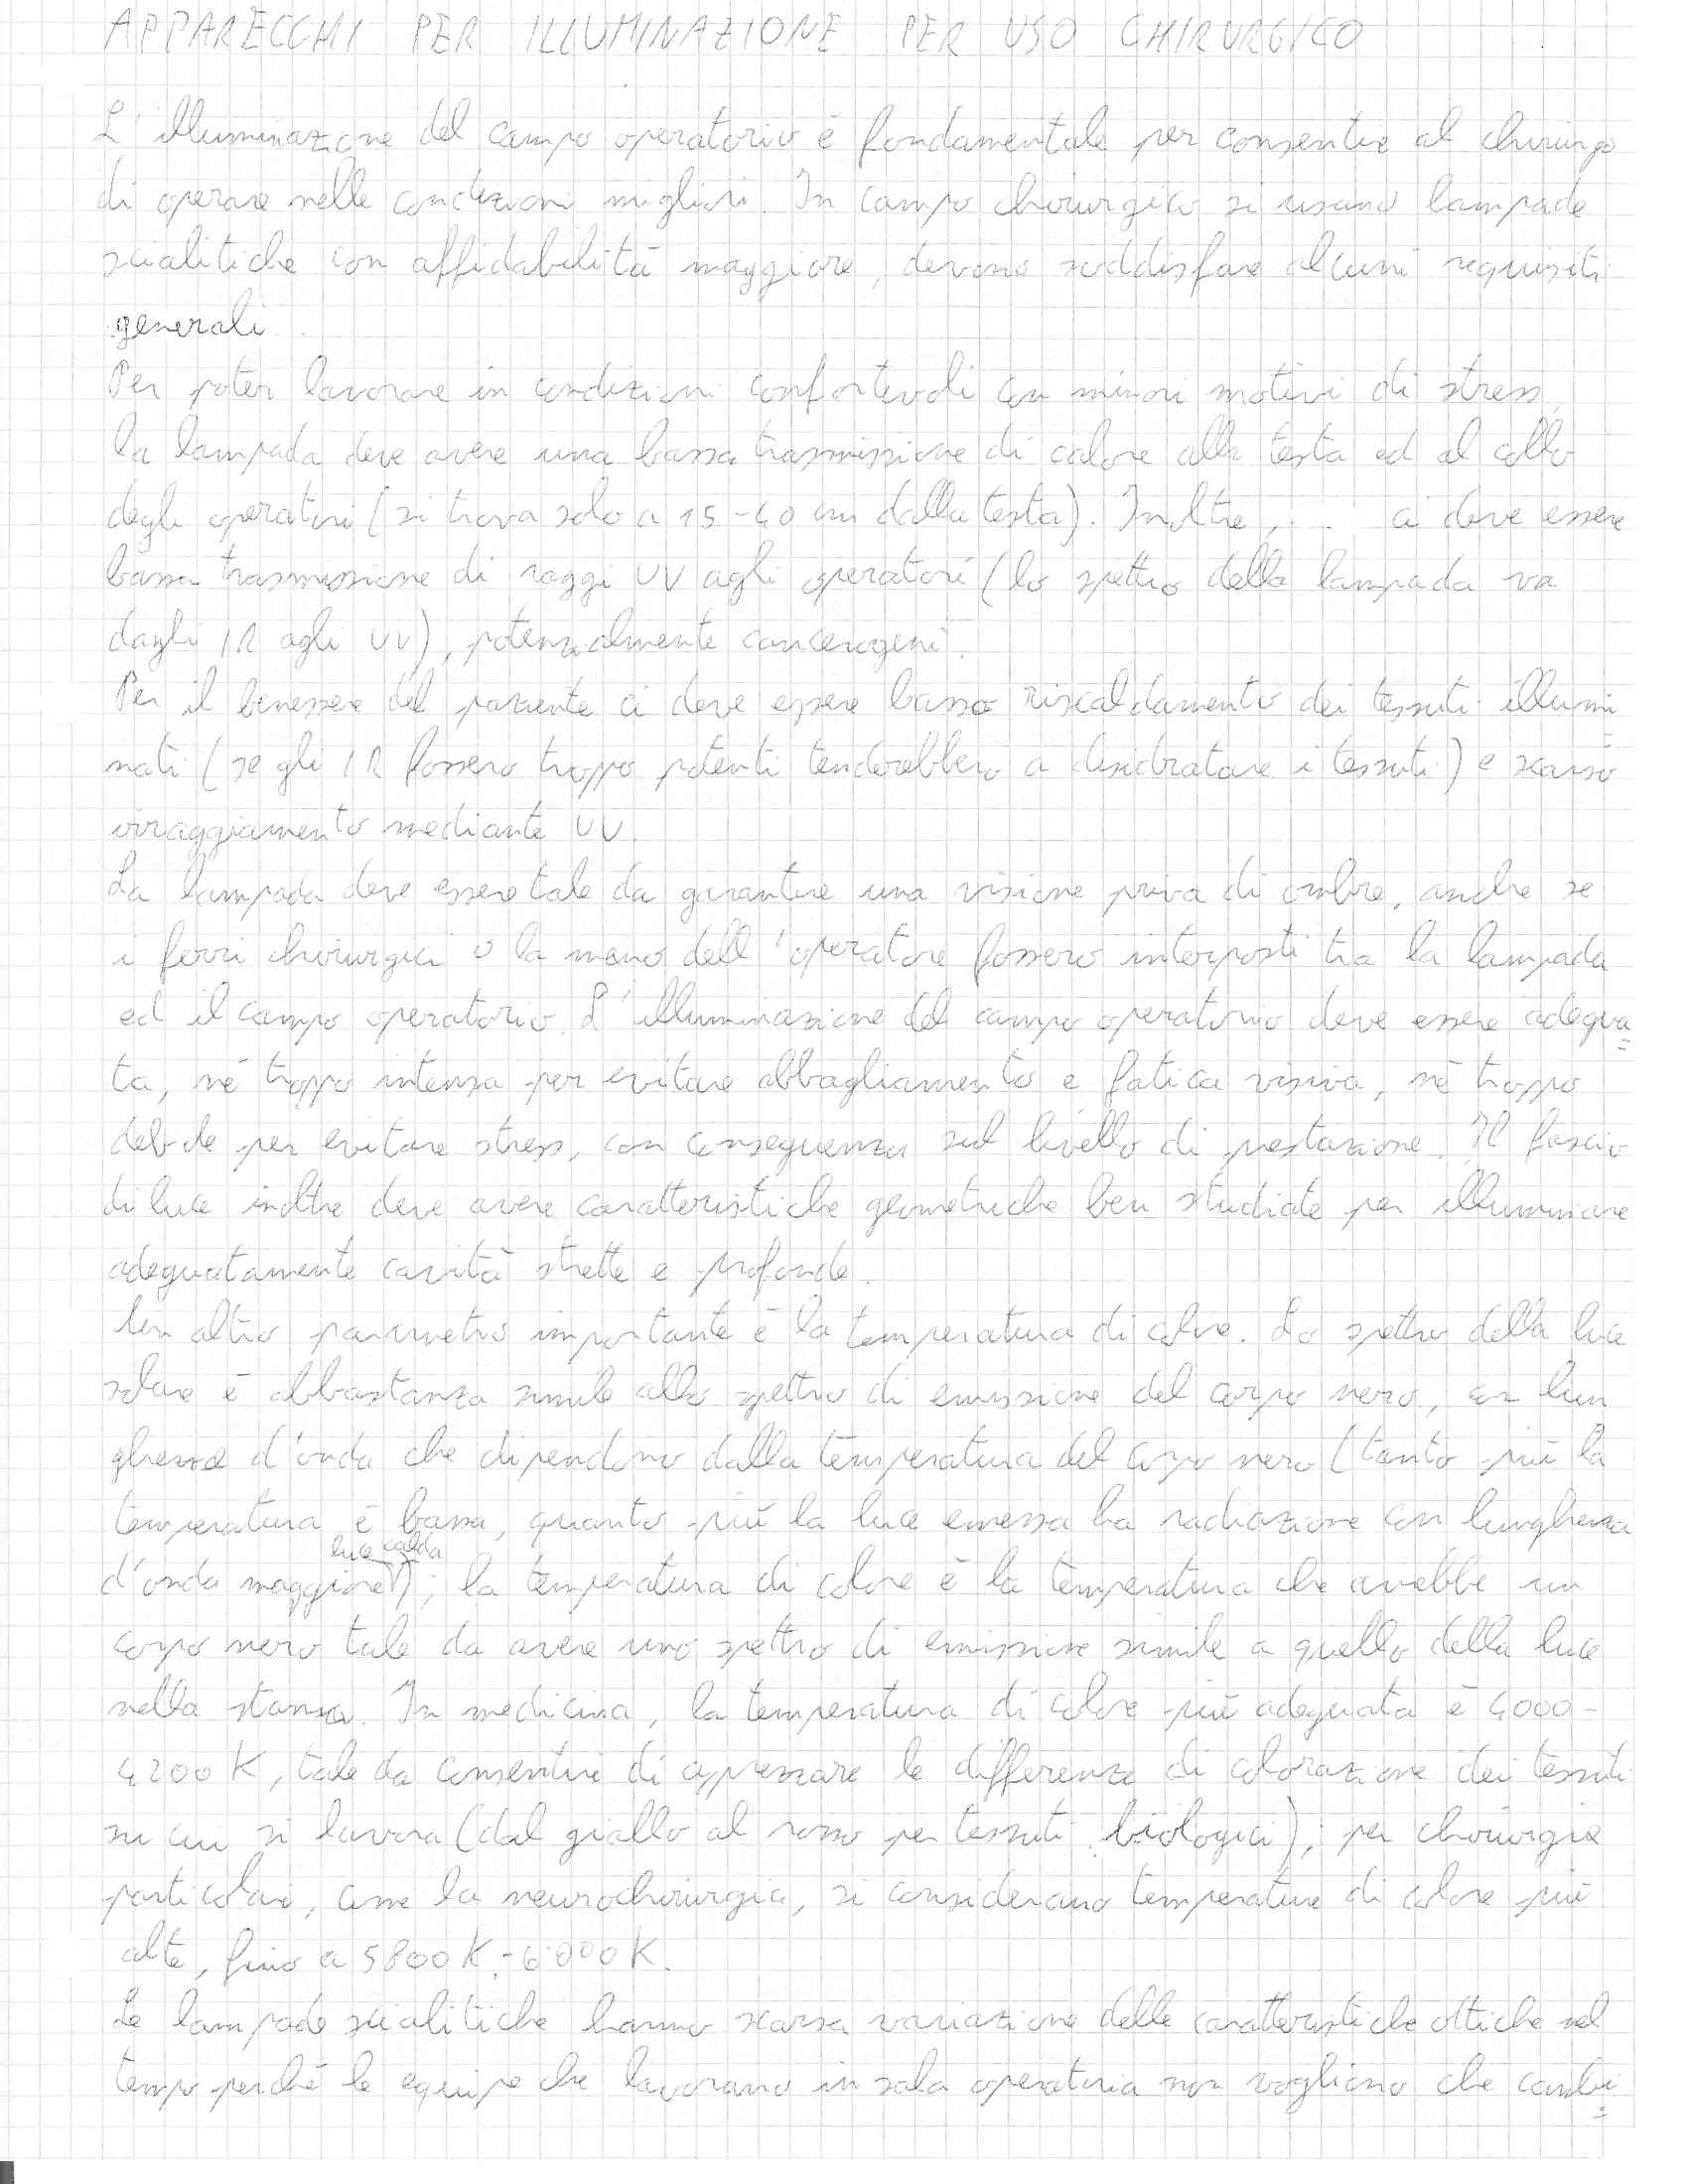 APPARECCHI PER ILLUMINAZIONE PER USO CHIRURGICO
L'illuminazione del campo operatorio è fondamentale per consentire al chirurgo
di operare nelle condizioni migliori. In campo chirurgico si usano lampade
scialitiche con affidabilità maggiore, devono soddisfare alcuni requisiti
generali.
Per poter lavorare in condizioni confortevoli con minori motivi di stress,
la lampada deve avere una bassa trasmissione di calore alla testa ed al collo
degli operatori (si trova solo a 15-40 cm dalla testa). Inoltre, ci deve essere
bassa trasmissione di raggi UV agli operatori (lo spettro della lampada va
dagli IR agli UV), potenzialmente cancerogeni.
Per il benessere del paziente ci deve essere basso riscaldamento dei tessuti illumi
nati (se gli IR fossero troppo potenti tenderebbero a disidratare i tessuti) e scarso
irraggiamento mediante UV.
La lampada deve essere tale da garantire una visione priva di ombre, anche se
i ferri chirurgici o la mano dell'operatore fossero interposti tra la lampada
ed il campo operatorio. L'illuminazione del campo operatorio deve essere adegua=
ta, né troppo intensa per evitare abbagliamento e fatica visiva, né troppo
debole per evitare stress, con conseguenza sul livello di prestazione. Il fascio
di luce inoltre deve avere caratteristiche geometriche ben studiate per illuminare
adeguatamente cavità strette e profonde.
Un altro parametro importante è la temperatura di colore. Lo spettro della luce
solare è abbastanza simile allo spettro di emissione del corpo nero, con lun
ghezze d'onda che dipendono dalla temperatura del corpo nero (tanto più la
temperatura è bassa, quanto più la luce emessa ha radiazione con lunghezza
luce calda
d'onda maggiore); la temperatura di colore è la temperatura che avrebbe un
corpo nero tale da avere uno spettro di emissione simile a quello della luce
nella stanza. In medicina, la temperatura di colore più adeguata è 4000-
4200 K, tale da consentire di apprezzare le differenze di colorazione dei tessuti
su cui si lavora (dal giallo al rosso per tessuti biologici); per chirurgie
particolari, come la neurochirurgia, si considerano temperature di colore più
alte, fino a 5800 K - 6000 K.
Le lampade scialitiche hanno scarsa variazione delle caratteristiche ottiche nel
tempo perché le equipe che lavorano in sala operatoria non vogliono che cambi=